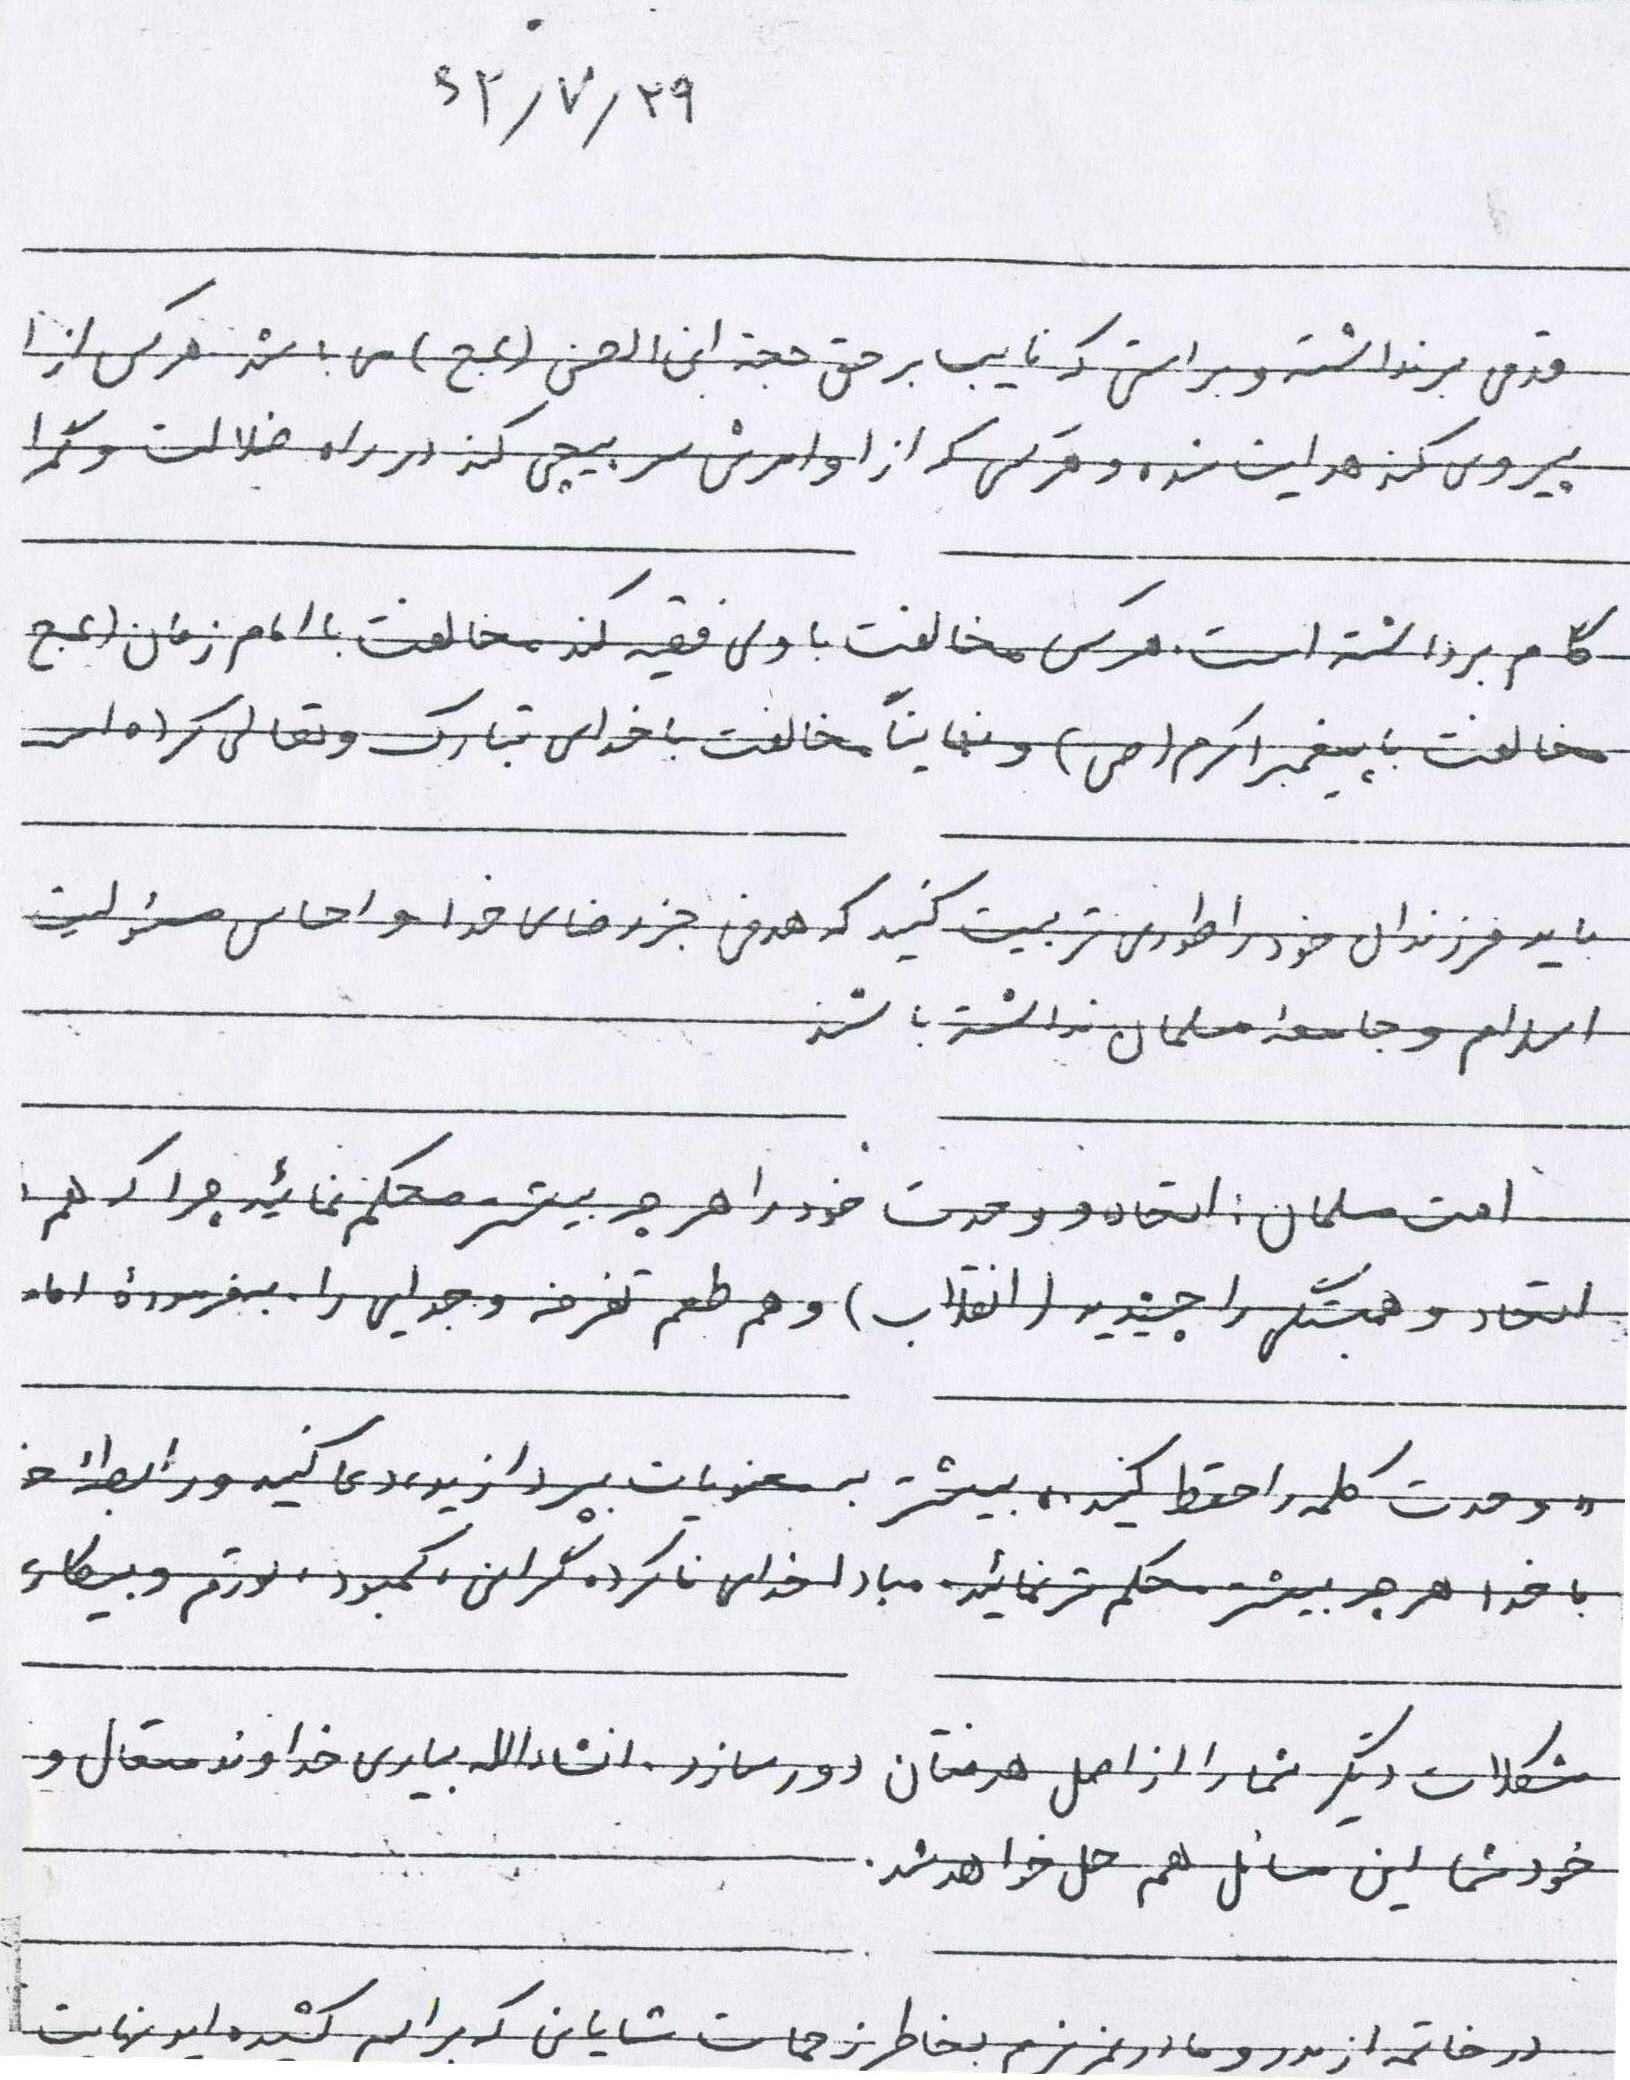 ۶۲/۷/۲۹
قدمی برنداشته و براستی که نایب بر حق حجة ابن الحسن (عج) می باشد هر کس از ا
پیروی کند هدایت شده و هرکس که از اوامرش سرپیچی کند در راه ضلالت و گمرا
گام برداشته است. هرکس مخالفت با ولی فقیه کند مخالفت با امام زمان (عج
مخالفت با پیغمبر اکرم (ص) و نهایتاً مخالفت با خدای تبارک و تعالی کرده است
باید فرزندان خود را طوری تربیت کنید که هدفی جز رضای خدا و احساس مسئولیت
اسلام و جامعه مسلمان نداشته باشند
امت مسلمان: اتحاد و وحدت خود را هر چه بیشتر محکم نمائید چرا که هم
اتحاد و همبستگی را چشیدید (انقلاب) و هم طعم تفرقه و جدایی را. بفرمودهٔ امام
«وحدت کلمه را حفظ کنید» بیشتر به معنویات بپردازید، دعا کنید و رابطهٔ خ
با خدا هر چه بیشتر محکم تر نمائید. مبادا خدای ناکرده گرانی، کمبود، تورم و بیکاری
مشکلات دیگر شما را از اصل هدفتان دور سازد. انشاءالله بیاری خداوند متعال و
خود شما این مسائل هم حل خواهد شد.
در خاتمه از پدر و مادر عزیزم بخاطر زحمات شایانی که برایم کشیده اید نهایت